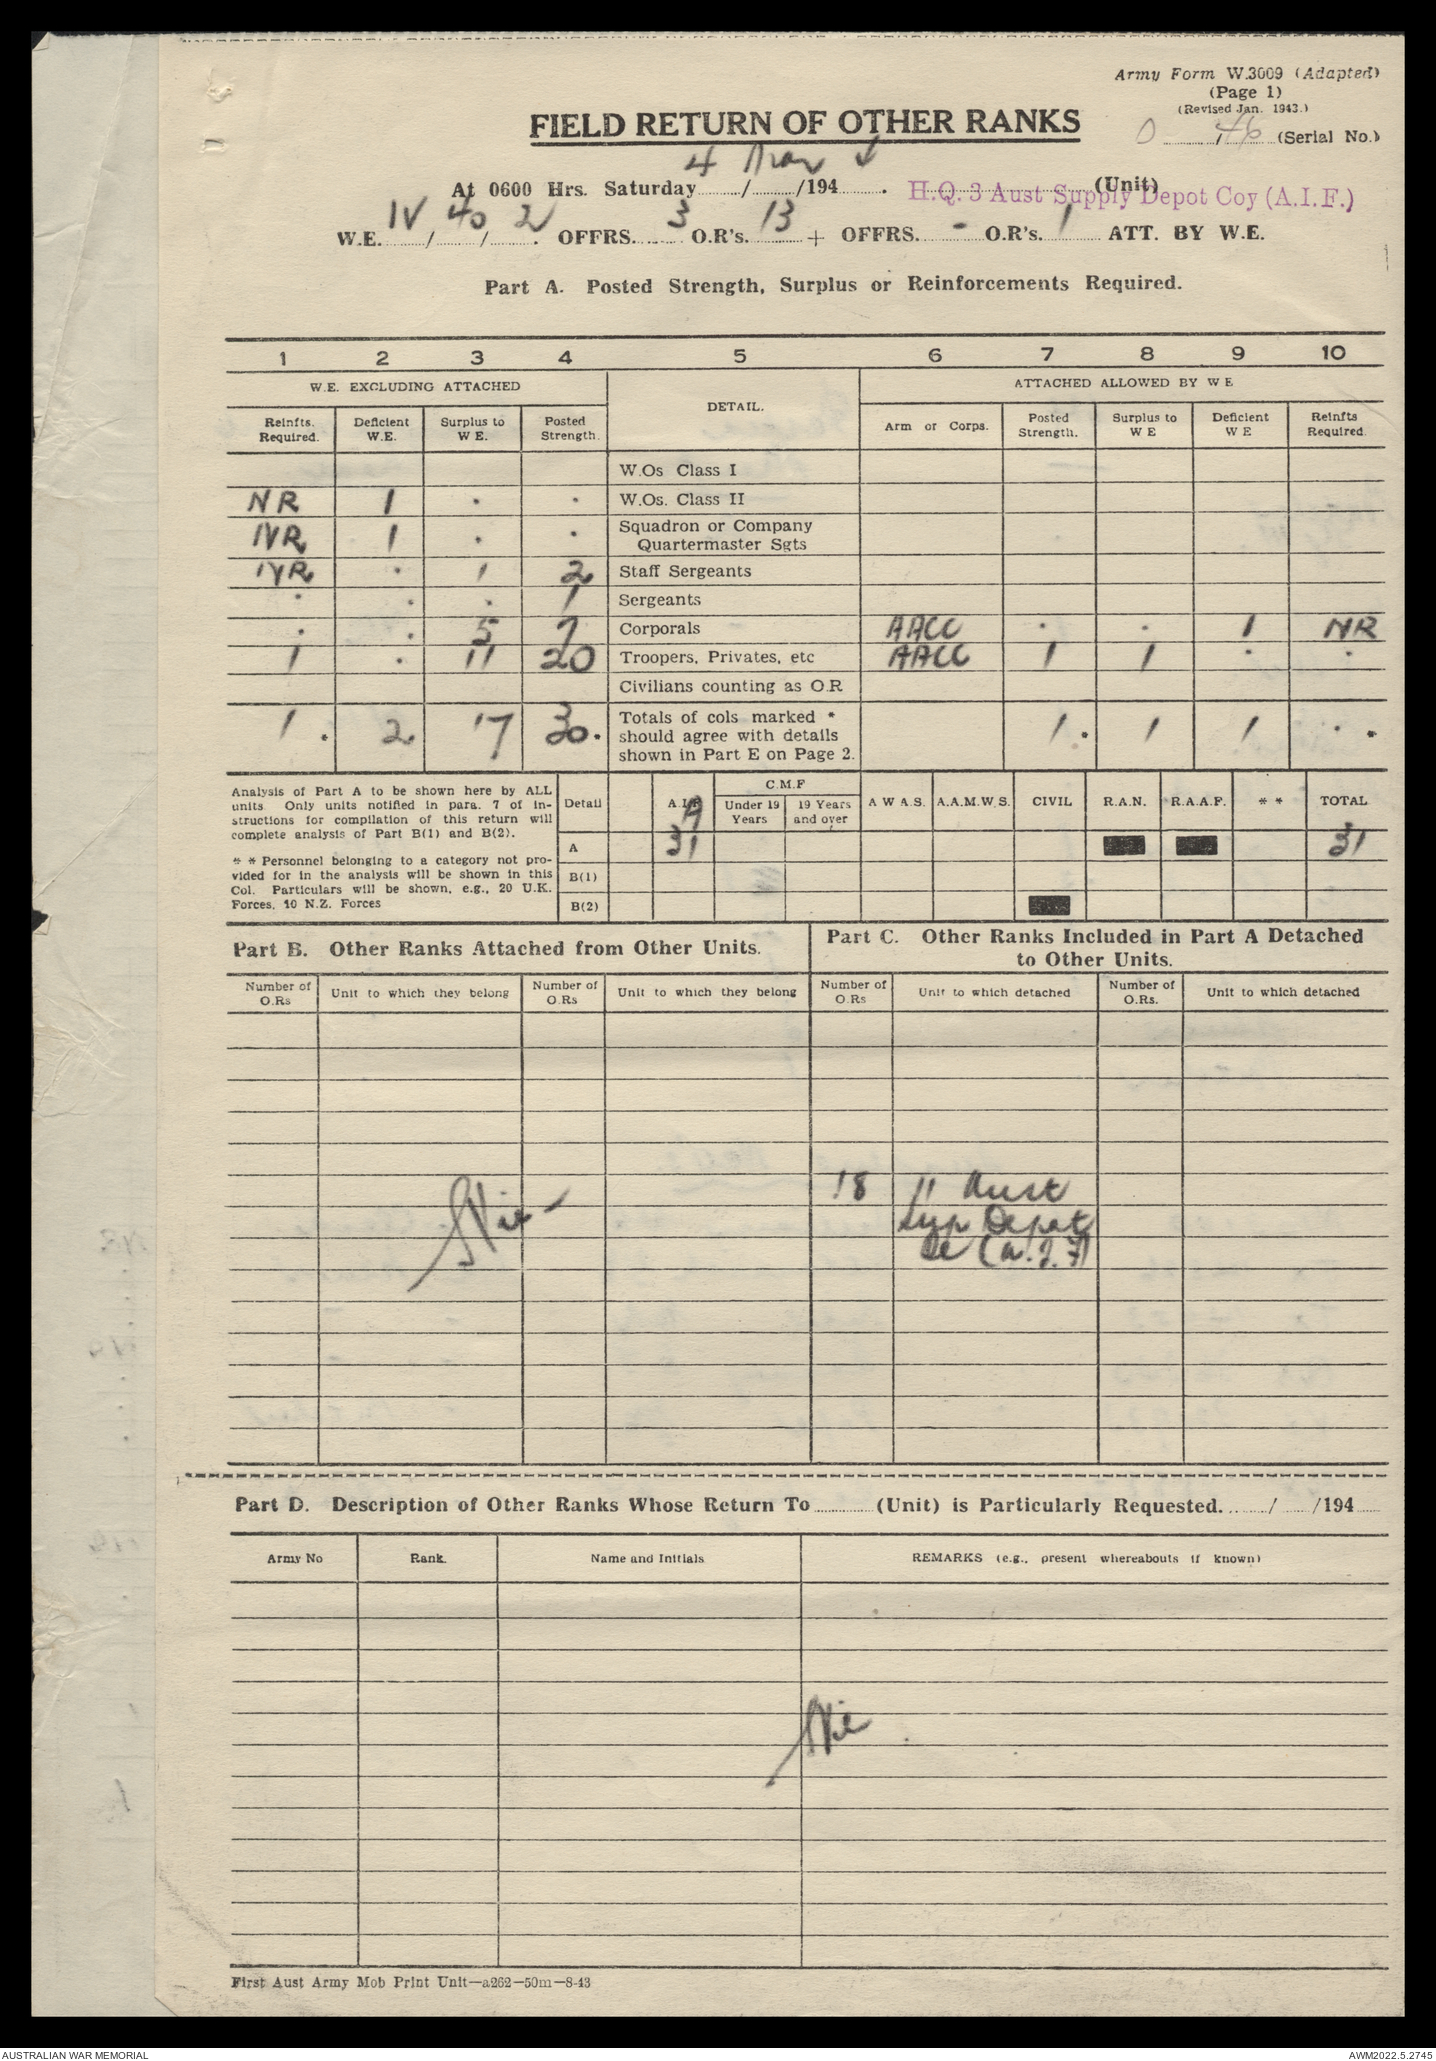 Army Form W.3009 (Adapted)
(Page 1)
(Revised Jan. 1943.)
FIELD RETURN OF OTHER RANKS
0 46 (Serial No.)
At 0600 Hrs. Saturday 4 / Mar /194 4. H.Q. 3 Aust Supply Depot Coy (A.I.F.) (Unit)
W.E. IV / 40 / 2. OFFRS. 3 O.R's. 13 + OFFRS. - O.R's. 1 ATT. BY W.E.
Part A. Posted Strength, Surplus or Reinforcements Required.
1 2 3 4 5 6 7 8 9 10
W.E. EXCLUDING ATTACHED DETAIL. ATTACHED ALLOWED BY W E
Reinfts. Required. Deficient W.E. Surplus to W E. Posted Strength. Arm or Corps. Posted Strength. Surplus to W E Deficient W E Reinfts Required.
W.Os Class I
NR 1 . . W.Os. Class II
NR 1 . . Squadron or Company Quartermaster Sgts
NR . 1 2 Staff Sergeants
. . . 1 Sergeants
. . 5 7 Corporals AACC . . 1 NR
1 . 11 20 Troopers, Privates, etc AACC 1 1 . .
Civilians counting as O.R
1 . 2 17 30 . Totals of cols marked *
should agree with details
shown in Part E on Page 2. 1 . 1 1 . *
Analysis of Part A to be shown here by ALL
units. Only units notified in para. 7 of in-
structions for compilation of this return will
complete analysis of Part B(1) and B(2).
* * Personnel belonging to a category not pro-
vided for in the analysis will be shown in this
Col. Particulars will be shown, e.g., 20 U.K.
Forces, 10 N.Z. Forces
Detail A.I.F. C.M.F Under 19 Years 19 Years and over A W A.S. A.A.M.W.S. CIVIL R.A.N. R.A.A.F. * * TOTAL
A 31 31
B(1)
B(2)
Part B. Other Ranks Attached from Other Units.
Part C. Other Ranks Included in Part A Detached
to Other Units.
Number of O.Rs Unit to which they belong Number of O.Rs Unit to which they belong Number of O.Rs Unit to which detached Number of O.Rs. Unit to which detached
Nil
18 11 Aust
Sup Depot
(A.I.F)
Part D. Description of Other Ranks Whose Return To ............ (Unit) is Particularly Requested. ....../....../194......
Army No Rank. Name and Initials REMARKS (e.g., present whereabouts if known)
Nil
First Aust Army Mob Print Unit—a262—50m—8-43
AUSTRALIAN WAR MEMORIAL AWM2022.5.2745